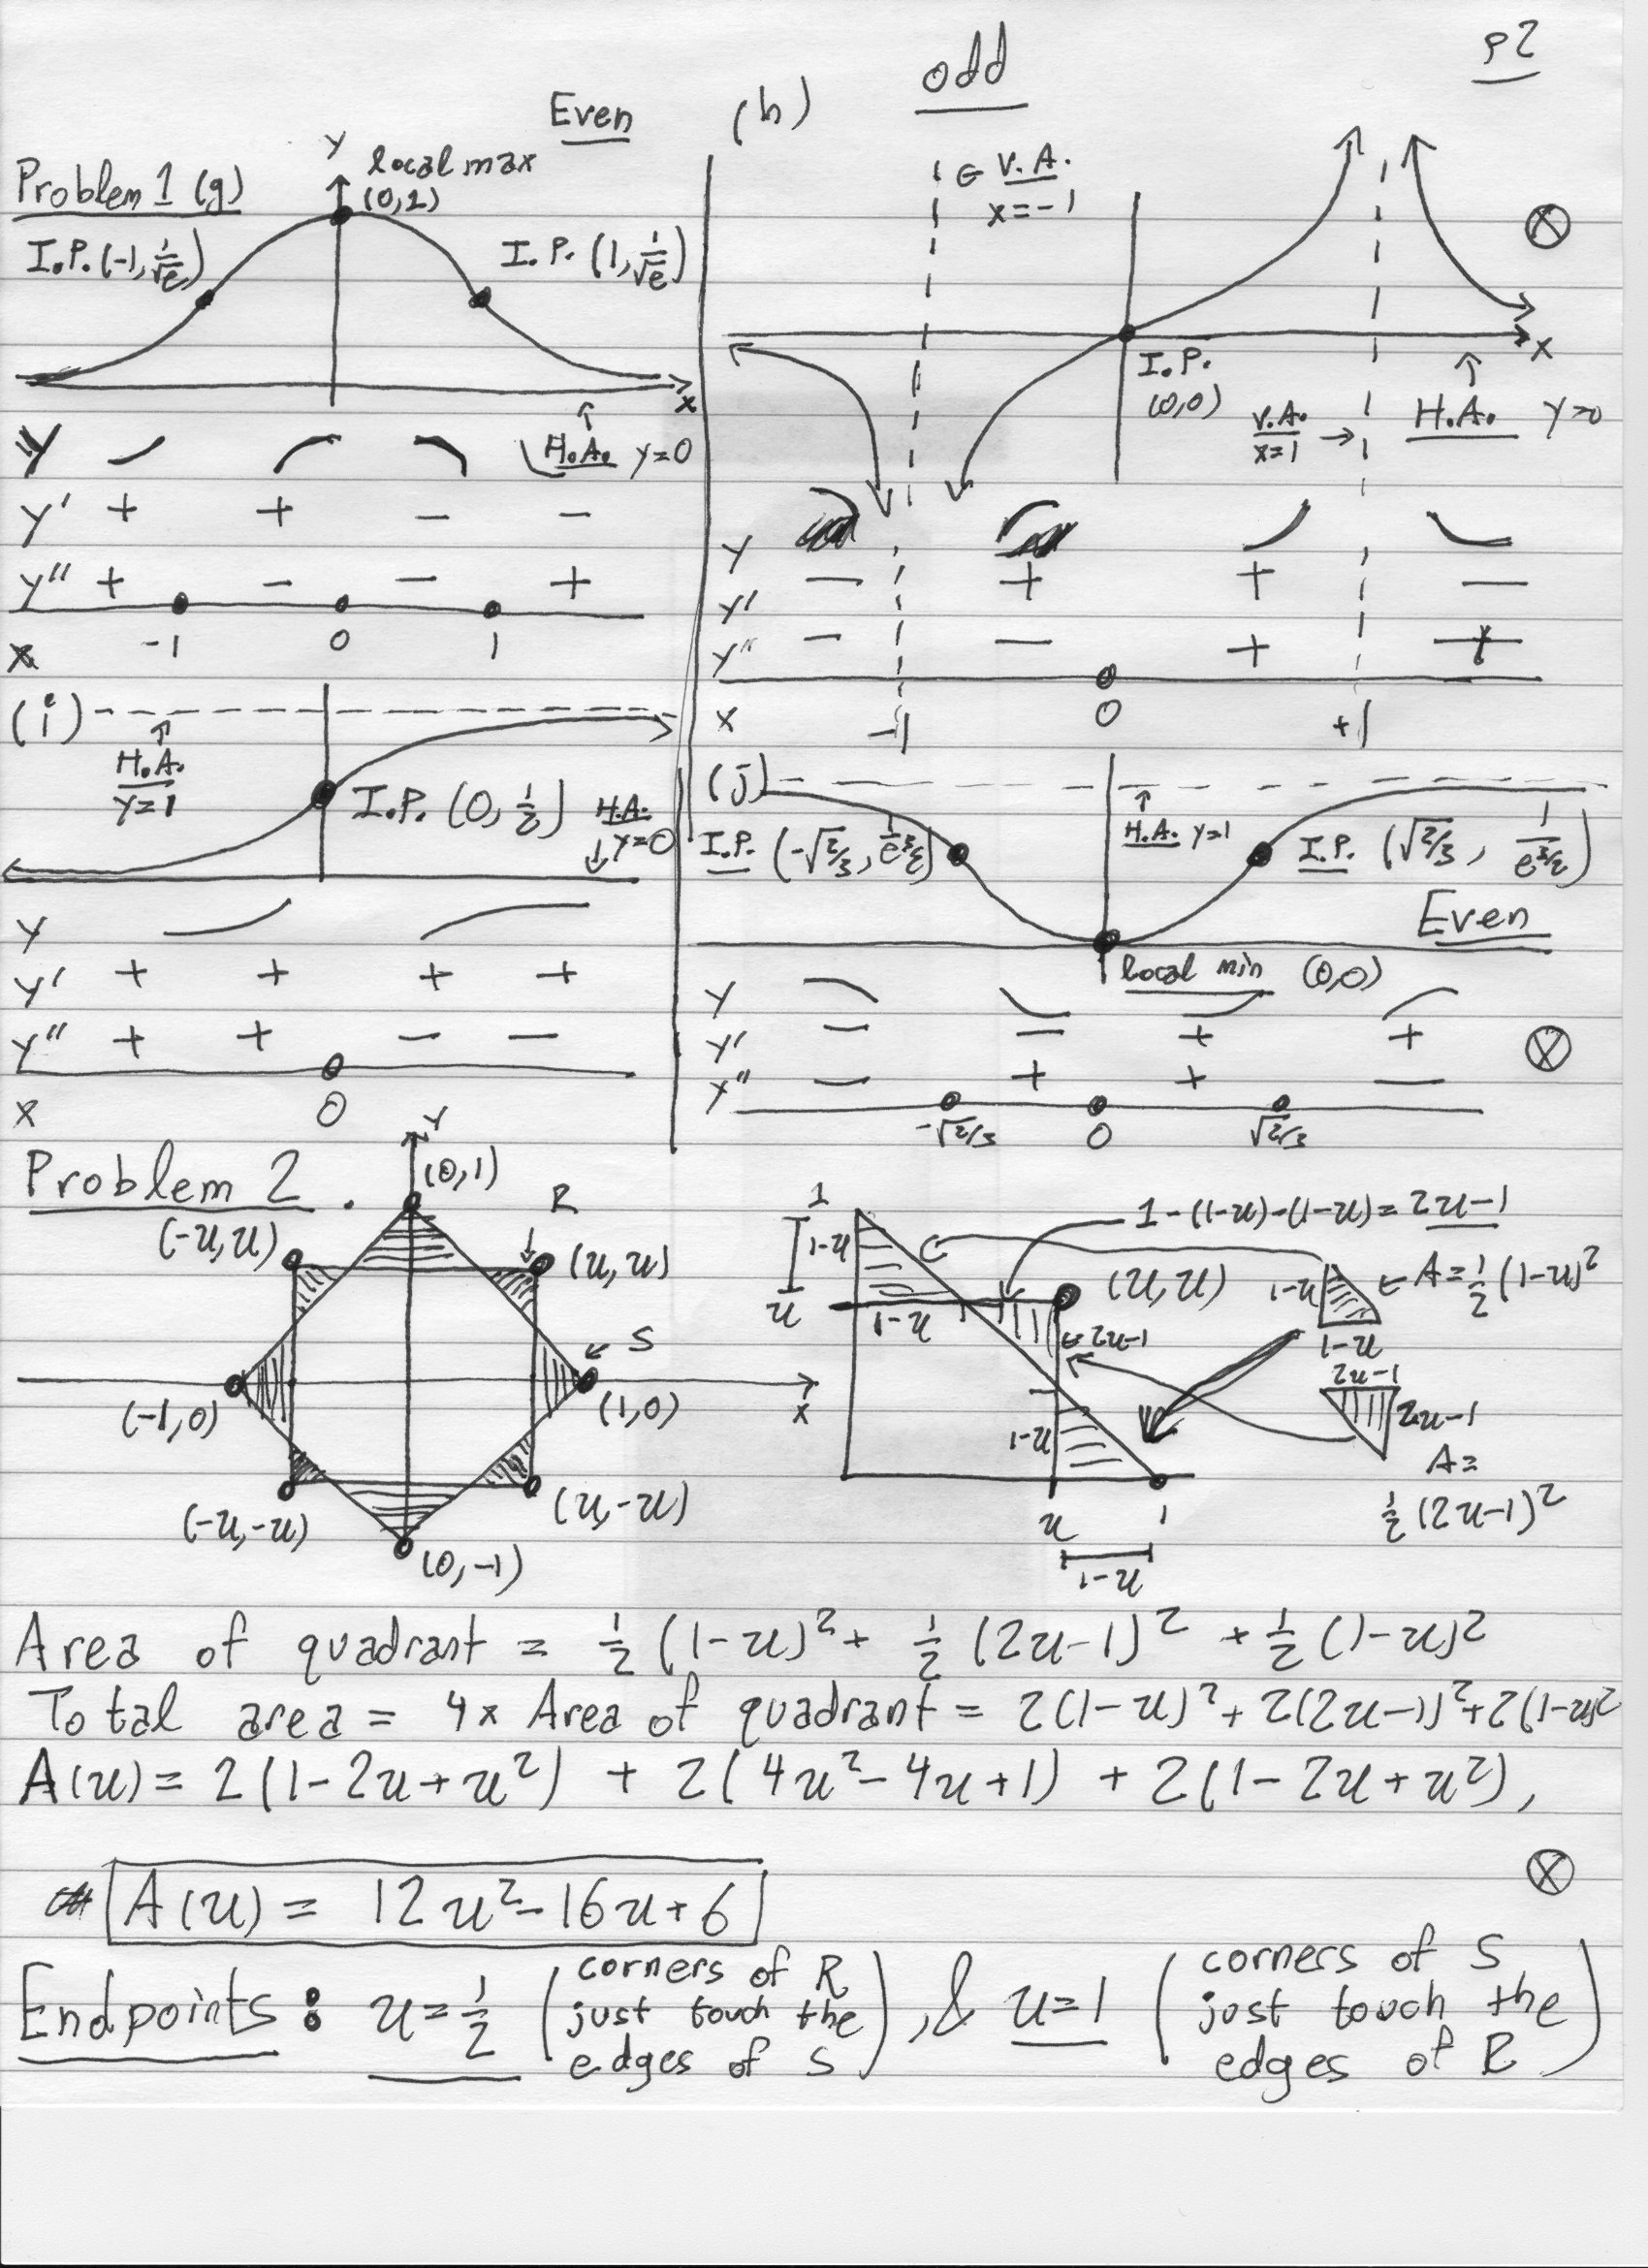 p2
Even
Problem 1 (g)
Y
local max
(0,1)
I.P. (-1, 1/√e)
I.P. (1, 1/√e)
x
H.A. y=0
Y
Y' + + - -
Y'' + - - +
x -1 0 1
(h) odd
← V.A.
x=-1
x
I.P.
(0,0)
V.A.
x=1 →
H.A. Y=0
Y
Y' - + + -
Y'' - - + +
x -1 0 +1
(i)
H.A.
Y=1
I.P. (0, 1/2)
H.A.
↓ Y=0
Y
Y' + + + +
Y'' + + - -
x 0
(j)
H.A. Y=1
I.P. (-√2/3, 1/e^3/2)
I.P. (√2/3, 1/e^3/2)
Even
local min (0,0)
Y
Y' - - + +
Y'' - + + -
-√2/3 0 √2/3
Problem 2.
Y
(0,1)
R
(-u,u)
(u,u)
S
x
(-1,0)
(1,0)
(-u,-u)
(u,-u)
(0,-1)
1
1-(1-u)-(1-u)=2u-1
1-u
u
1-u
(u,u)
←2u-1
1-u
u 1
1-u
1-u
← A=1/2(1-u)^2
1-u
2u-1
2u-1
A=
1/2(2u-1)^2
Area of quadrant = 1/2(1-u)^2+ 1/2(2u-1)^2 + 1/2(1-u)^2
Total area = 4x Area of quadrant = 2(1-u)^2+2(2u-1)^2+2(1-u)^2
A(u)= 2(1-2u+u^2) + 2(4u^2-4u+1) + 2(1-2u+u^2),
A(u) = 12u^2-16u+6
Endpoints: u=1/2 (corners of R just touch the edges of S), & u=1 (corners of S just touch the edges of R)